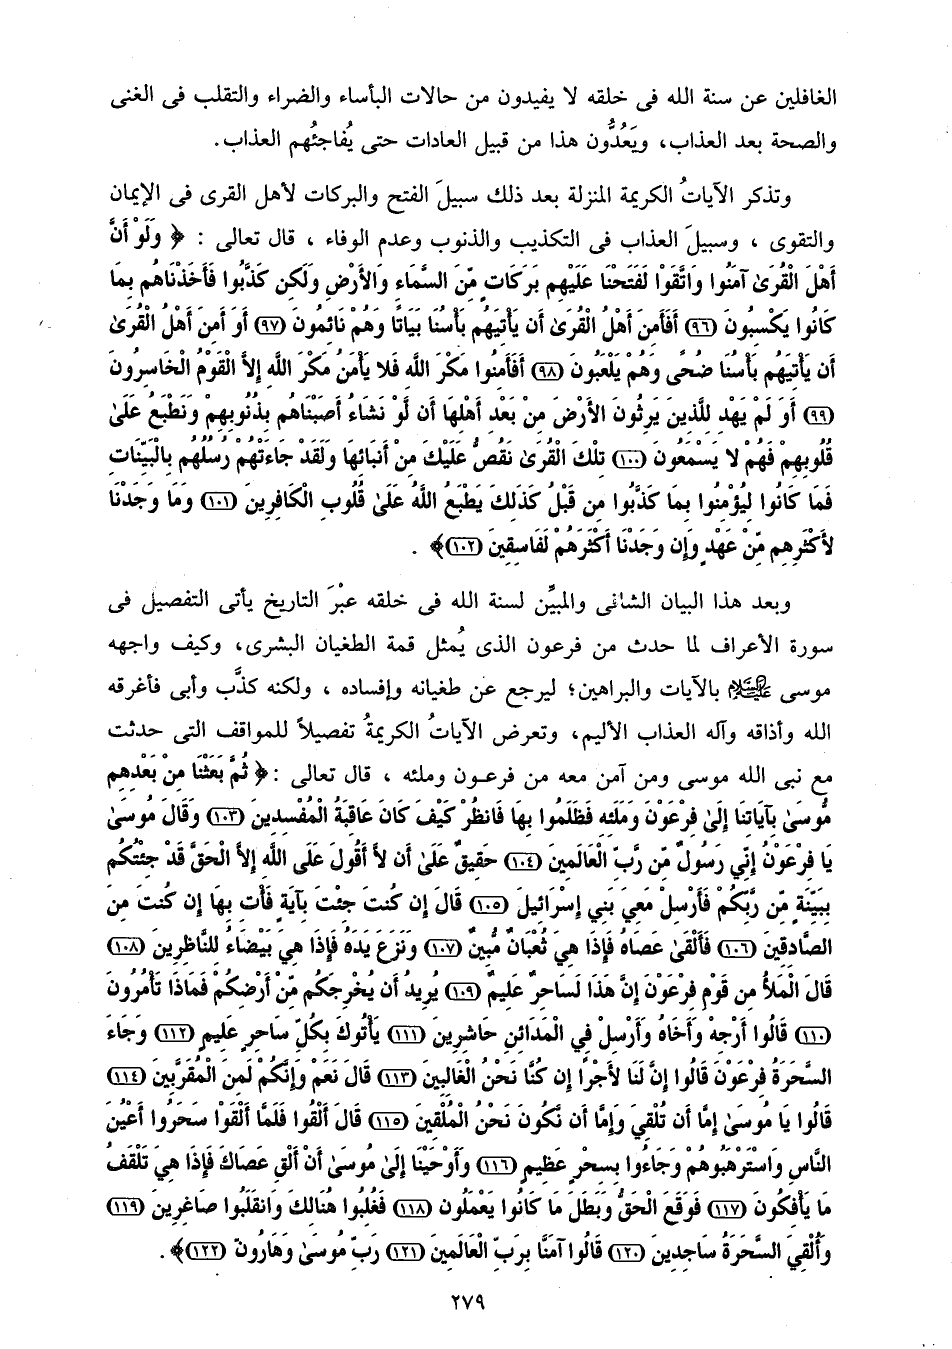 الغافلين عن سنة الله فى خلقه لا يفيدون من حالات البأساء والضراء والتقلب فى الغنى
والصحة بعد العذاب، ويَعُدُّون هذا من قبيل العادات حتى يُفاجئُهم العذاب.
وتذكر الآياتُ الكريمة المنزلة بعد ذلك سبيلَ الفتح والبركات لأهل القرى فى الإيمان
والتقوى ، وسبيلَ العذاب فى التكذيب والذنوب وعدم الوفاء ، قال تعالى : ﴿ وَلَوْ أَنَّ
أَهْلَ الْقُرَىٰ آمَنُوا وَاتَّقَوْا لَفَتَحْنَا عَلَيْهِم بَرَكَاتٍ مِّنَ السَّمَاءِ وَالأَرْضِ وَلَكِن كَذَّبُوا فَأَخَذْنَاهُم بِمَا
كَانُوا يَكْسِبُونَ (٩٦) أَفَأَمِنَ أَهْلُ الْقُرَىٰ أَن يَأْتِيَهُم بَأْسُنَا بَيَاتًا وَهُمْ نَائِمُونَ (٩٧) أَوَ أَمِنَ أَهْلُ الْقُرَىٰ
أَن يَأْتِيَهُم بَأْسُنَا ضُحًى وَهُمْ يَلْعَبُونَ (٩٨) أَفَأَمِنُوا مَكْرَ اللَّهِ فَلا يَأْمَنُ مَكْرَ اللَّهِ إِلاَّ الْقَوْمُ الْخَاسِرُونَ
(٩٩) أَوَ لَمْ يَهْدِ لِلَّذِينَ يَرِثُونَ الأَرْضَ مِنْ بَعْدِ أَهْلِهَا أَن لَّوْ نَشَاءُ أَصَبْنَاهُم بِذُنُوبِهِمْ وَنَطْبَعُ عَلَىٰ
قُلُوبِهِمْ فَهُمْ لا يَسْمَعُونَ (١٠٠) تِلْكَ الْقُرَىٰ نَقُصُّ عَلَيْكَ مِنْ أَنبَائِهَا وَلَقَدْ جَاءَتْهُمْ رُسُلُهُم بِالْبَيِّنَاتِ
فَمَا كَانُوا لِيُؤْمِنُوا بِمَا كَذَّبُوا مِن قَبْلُ كَذَلِكَ يَطْبَعُ اللَّهُ عَلَىٰ قُلُوبِ الْكَافِرِينَ (١٠١) وَمَا وَجَدْنَا
لأَكْثَرِهِم مِّنْ عَهْدٍ وَإِن وَجَدْنَا أَكْثَرَهُمْ لَفَاسِقِينَ (١٠٢)﴾ .
وبعد هذا البيان الشافى والمبيِّن لسنة الله فى خلقه عبْرَ التاريخ يأتى التفصيل فى
سورة الأعراف لما حدث من فرعون الذى يُمثل قمة الطغيان البشرى، وكيف واجهه
موسى عليه السلام بالآيات والبراهين؛ ليرجع عن طغيانه وإفساده ، ولكنه كذَّب وأبى فأغرقه
الله وأذاقه وآله العذاب الأليم، وتعرض الآياتُ الكريمةُ تفصيلاً للمواقف التى حدثت
مع نبى الله موسى ومن آمن معه من فرعون وملئه ، قال تعالى :﴿ ثُمَّ بَعَثْنَا مِنْ بَعْدِهِم
مُّوسَىٰ بِآيَاتِنَا إِلَىٰ فِرْعَوْنَ وَمَلَئِهِ فَظَلَمُوا بِهَا فَانظُرْ كَيْفَ كَانَ عَاقِبَةُ الْمُفْسِدِينَ (١٠٣) وَقَالَ مُوسَىٰ
يَا فِرْعَوْنُ إِنِّي رَسُولٌ مِّن رَّبِّ الْعَالَمِينَ (١٠٤) حَقِيقٌ عَلَىٰ أَن لاَّ أَقُولَ عَلَى اللَّهِ إِلاَّ الْحَقَّ قَدْ جِئْتُكُم
بِبَيِّنَةٍ مِّن رَّبِّكُمْ فَأَرْسِلْ مَعِيَ بَنِي إِسْرَائِيلَ (١٠٥) قَالَ إِن كُنتَ جِئْتَ بِآيَةٍ فَأْتِ بِهَا إِن كُنتَ مِنَ
الصَّادِقِينَ (١٠٦) فَأَلْقَىٰ عَصَاهُ فَإِذَا هِيَ ثُعْبَانٌ مُّبِينٌ (١٠٧) وَنَزَعَ يَدَهُ فَإِذَا هِيَ بَيْضَاءُ لِلنَّاظِرِينَ (١٠٨)
قَالَ الْمَلأُ مِن قَوْمِ فِرْعَوْنَ إِنَّ هَذَا لَسَاحِرٌ عَلِيمٌ (١٠٩) يُرِيدُ أَن يُخْرِجَكُم مِّنْ أَرْضِكُمْ فَمَاذَا تَأْمُرُونَ
(١١٠) قَالُوا أَرْجِهْ وَأَخَاهُ وَأَرْسِلْ فِي الْمَدَائِنِ حَاشِرِينَ (١١١) يَأْتُوكَ بِكُلِّ سَاحِرٍ عَلِيمٍ (١١٢) وَجَاءَ
السَّحَرَةُ فِرْعَوْنَ قَالُوا إِنَّ لَنَا لأَجْرًا إِن كُنَّا نَحْنُ الْغَالِبِينَ (١١٣) قَالَ نَعَمْ وَإِنَّكُمْ لَمِنَ الْمُقَرَّبِينَ (١١٤)
قَالُوا يَا مُوسَىٰ إِمَّا أَن تُلْقِيَ وَإِمَّا أَن نَّكُونَ نَحْنُ الْمُلْقِينَ (١١٥) قَالَ أَلْقُوا فَلَمَّا أَلْقَوْا سَحَرُوا أَعْيُنَ
النَّاسِ وَاسْتَرْهَبُوهُمْ وَجَاءُوا بِسِحْرٍ عَظِيمٍ (١١٦) وَأَوْحَيْنَا إِلَىٰ مُوسَىٰ أَنْ أَلْقِ عَصَاكَ فَإِذَا هِيَ تَلْقَفُ
مَا يَأْفِكُونَ (١١٧) فَوَقَعَ الْحَقُّ وَبَطَلَ مَا كَانُوا يَعْمَلُونَ (١١٨) فَغُلِبُوا هُنَالِكَ وَانقَلَبُوا صَاغِرِينَ (١١٩)
وَأُلْقِيَ السَّحَرَةُ سَاجِدِينَ (١٢٠) قَالُوا آمَنَّا بِرَبِّ الْعَالَمِينَ (١٢١) رَبِّ مُوسَىٰ وَهَارُونَ (١٢٢)﴾ .
٢٧٩